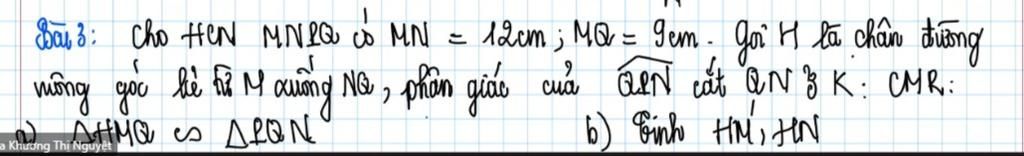 Bài 3: Cho HCN MNPQ có MN = 12cm; MQ = 9cm. Gọi H là chân đường
vuông góc kẻ từ M xuống NQ, phân giác của QPN cắt QN ở K: CMR:
a) ΔHMQ ∽ ΔPQN b) Tính HM, HN
a Khương Thi Nguyệt